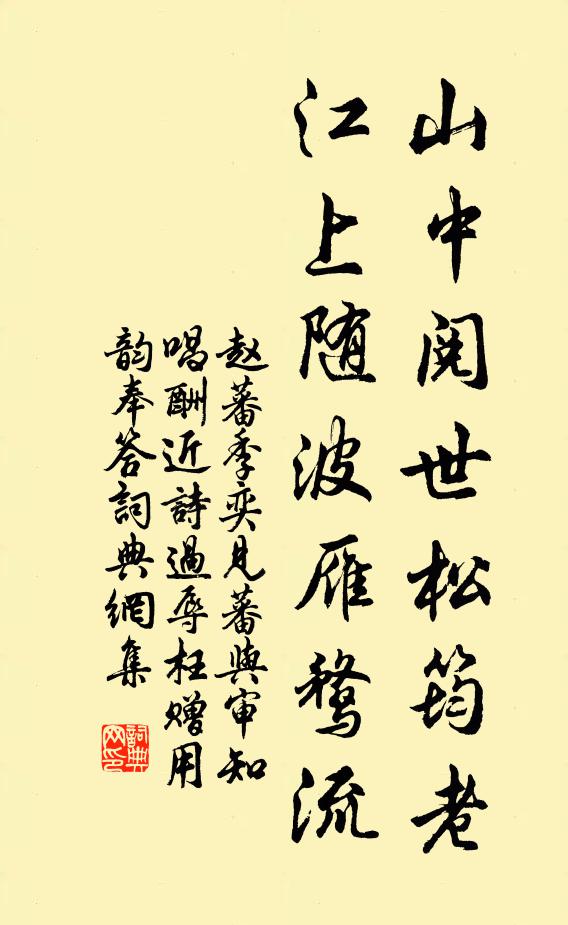 山中阅世松筠老
江上随波雁鹜流
赵蕃季奕見蕃與审知
唱酬近詩過辱枉赠用
韵奉答詞典網集
詞典网印